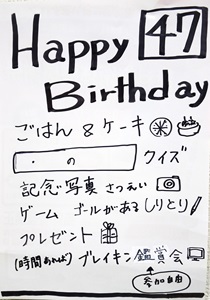 Happy 47
Birthday
ごはん & ケーキ
・ の クイズ
記念写真 さつえい
ゲーム ゴールがある しりとり
プレゼント
(時間あれば) ブレイキン 鑑賞会
参加自由